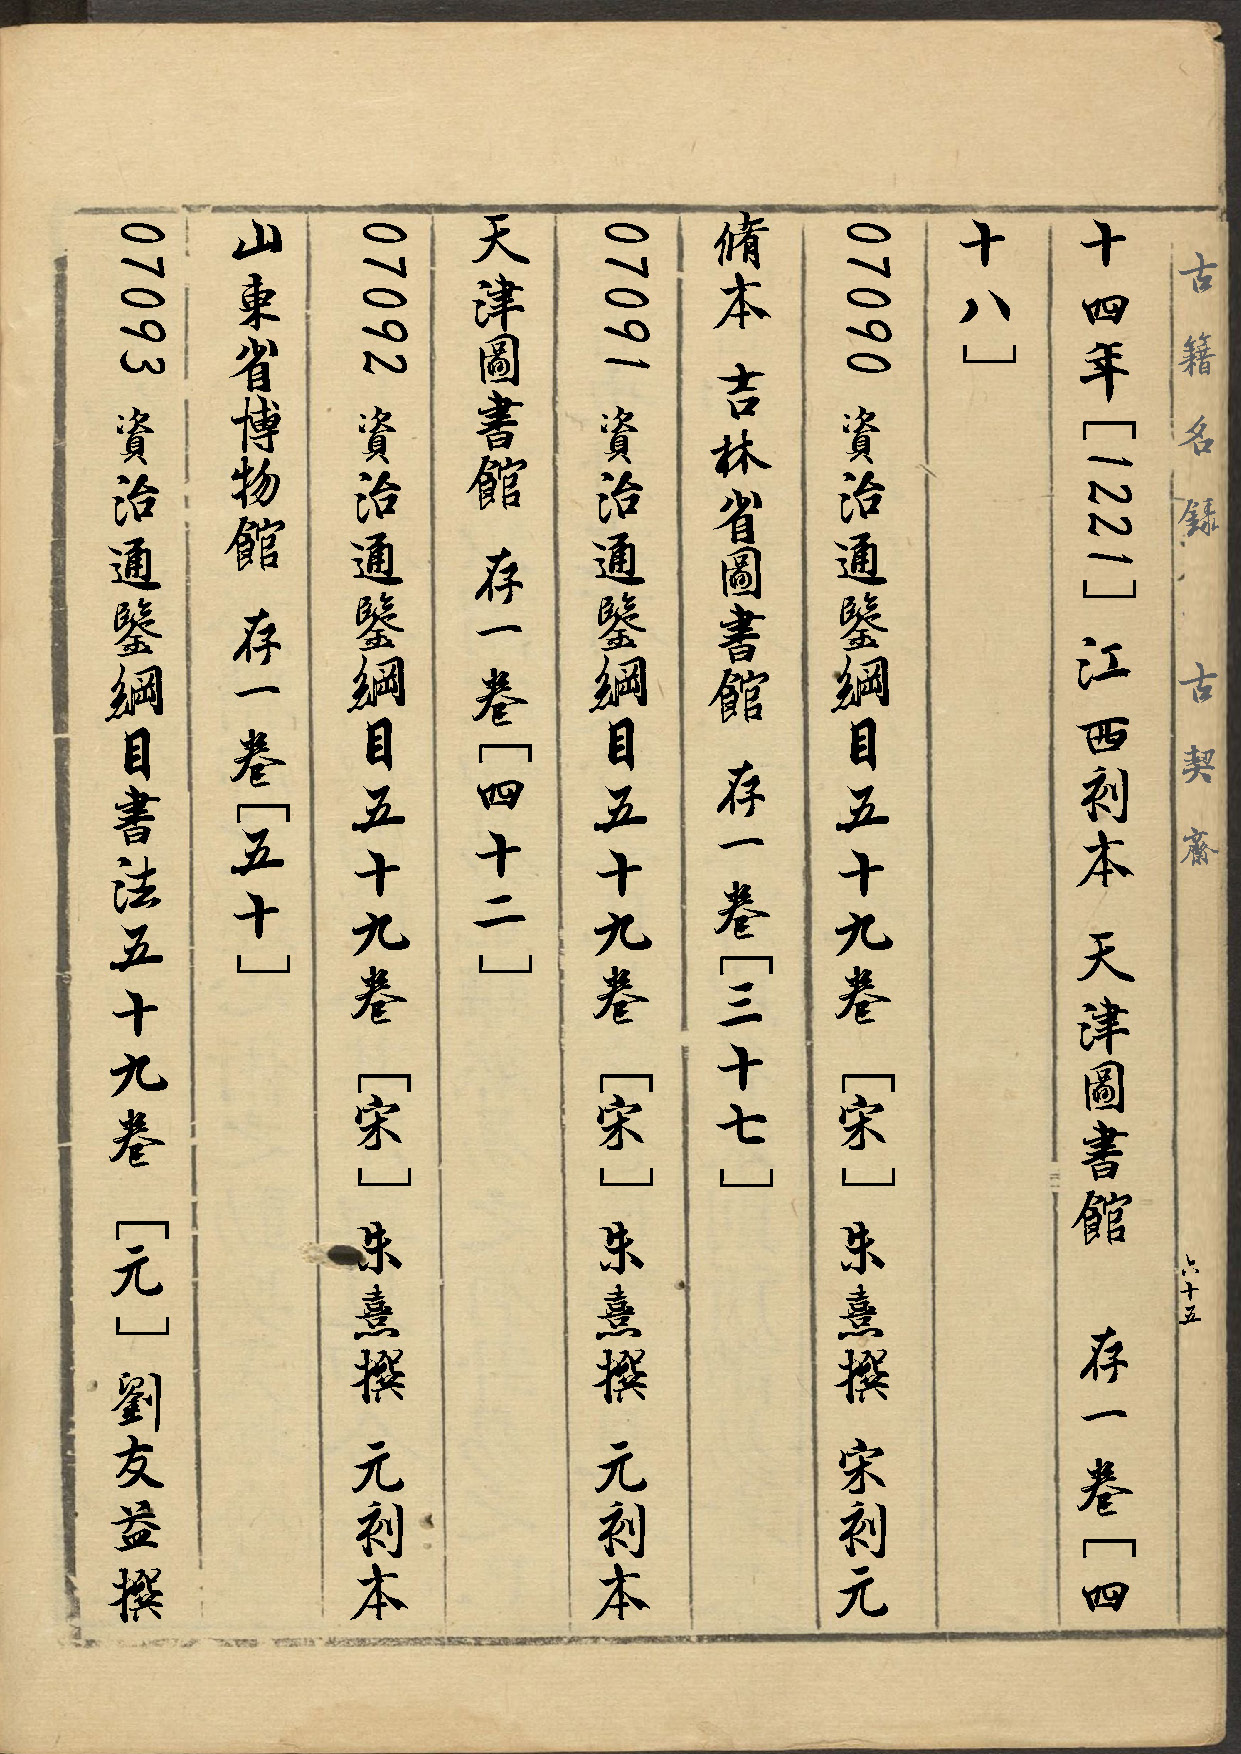 古籍名錄 古契齋 六十五
十四年[1221]江西刻本 天津圖書館 存一卷[四
十八]
07090 資治通鑒綱目五十九卷 [宋] 朱熹撰 宋刻元
脩本 吉林省圖書館 存一卷[三十七]
07091 資治通鑒綱目五十九卷 [宋] 朱熹撰 元刻本
天津圖書館 存一卷[四十二]
07092 資治通鑒綱目五十九卷 [宋] 朱熹撰 元刻本
山東省博物館 存一卷[五十]
07093 資治通鑒綱目書法五十九卷 [元] 劉友益撰